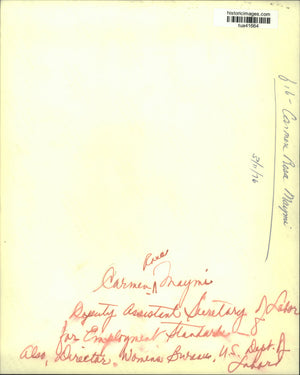 historicimages.com
tua41664
f16 - Carmen Rosa Maymi
5/11/76
Rosa
Carmen ^ Maymi
Deputy Assistant Secretary of Labor
for Employment Standards &
Also, Director, Womens Bureau, U.S. Dept. of
Labor